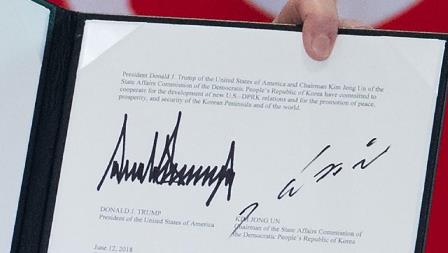 President Donald J. Trump of the United States of America and Chairman Kim Jong Un of the
State Affairs Commission of the Democratic People's Republic of Korea have committed to
cooperate for the development of new U.S.-DPRK relations and for the promotion of peace,
prosperity, and security of the Korean Peninsula and of the world.
DONALD J. TRUMP
President of the United States of America
KIM JONG UN
Chairman of the State Affairs Commission of
the Democratic People's Republic of Korea
June 12, 2018